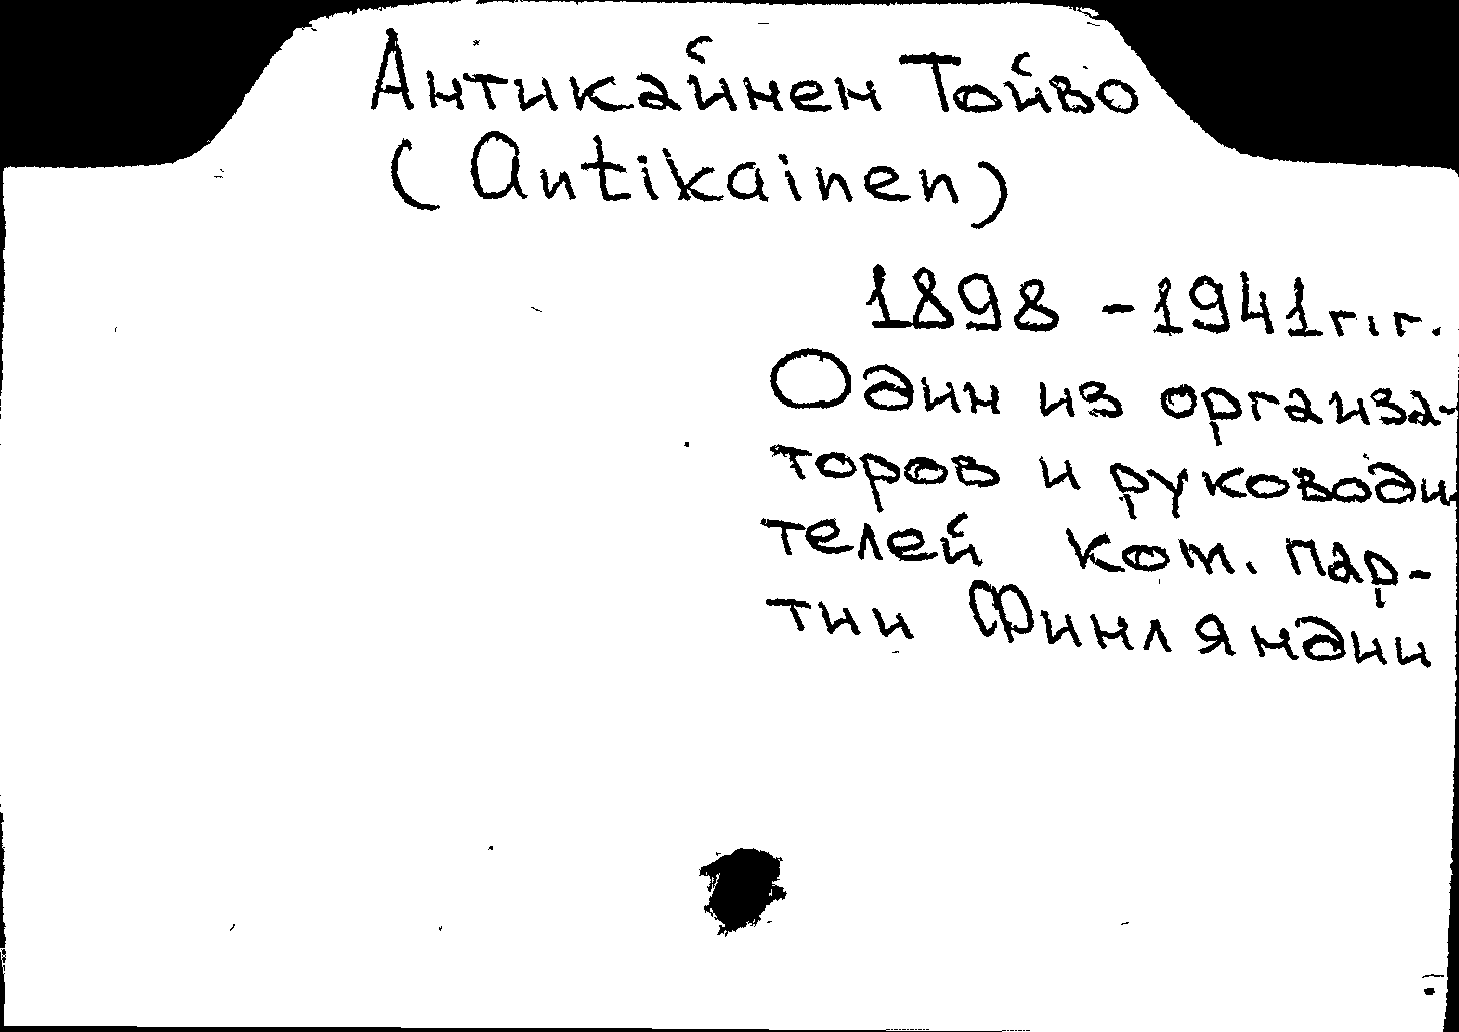 Антикайнен Тойво
(Antikainen)
1898 - 1941 г.г.
Один из организа-
торов и руководи-
телей ком. пар-
тии Финляндии